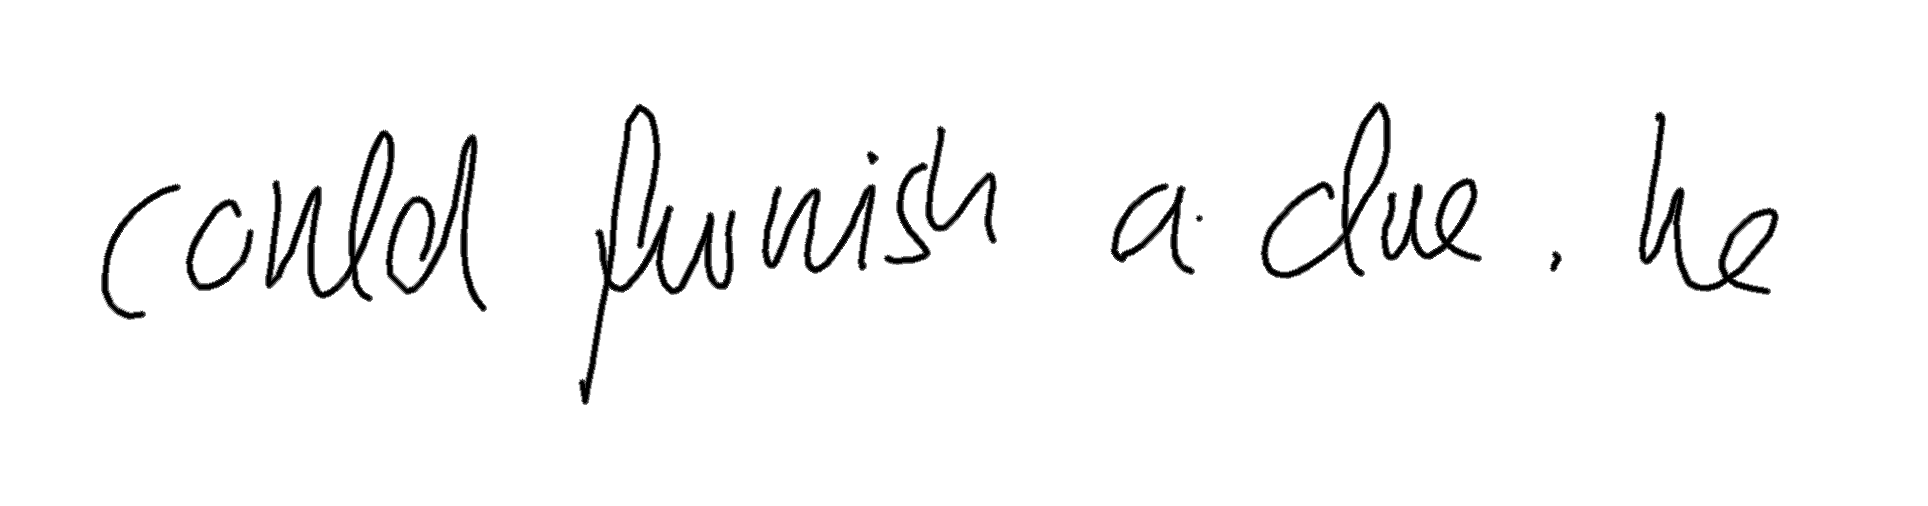 could furnish a clue. he